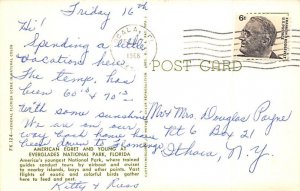 Friday 16th
Hi!
Spending a little
vacation here.
The temp. has
been 60's & 70's
with some sunshine
We are on our
way back home have
been down to Flamingo
Kitty & Russ
AMERICAN EGRET AND YOUNG AT
EVERGLADES NATIONAL PARK, FLORIDA
America's youngest National Park, where trained
guides conduct tours by airboat and cruiser
to nearby islands, bays and other points. Vast
flights of exotic and colorful birds gather
here to feed and
OCALA,
1968
6¢
POST CARD
Mr & Mrs. Douglas Payne
Rt 6 Box 21
Ithaca, N.Y.